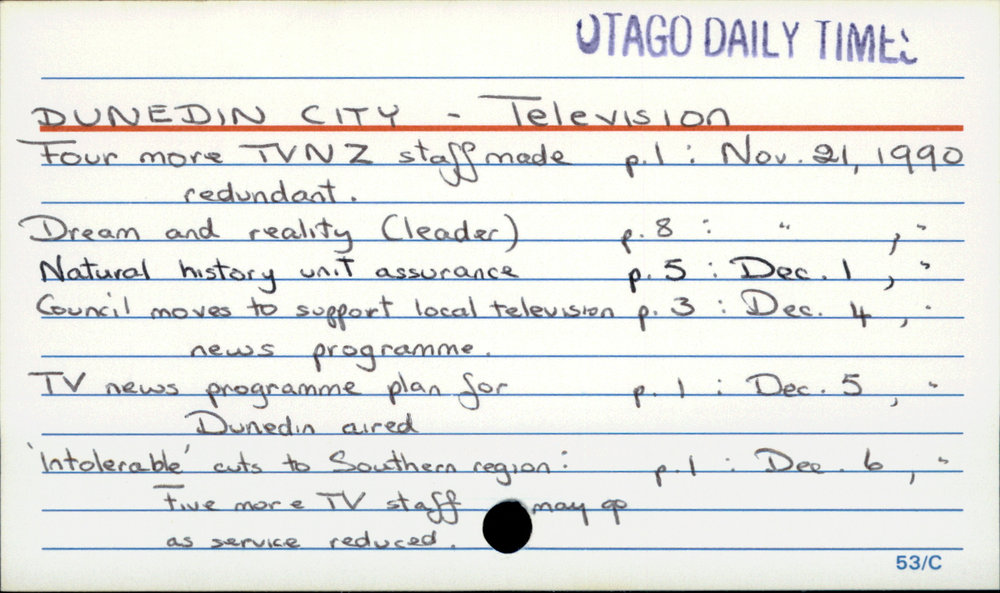 OTAGO DAILY TIMES
DUNEDIN CITY - Television
Four more TVNZ staff made p.1 : Nov. 21, 1990
redundant.
Dream and reality (leader) p.8 : " , "
Natural history unit assurance p.5 : Dec. 1, "
Council moves to support local television p.3 : Dec. 4, "
news programme.
TV news programme plan for p.1 : Dec. 5, "
Dunedin aired
'Intolerable' cuts to Southern region: p.1 : Dec. 6, "
Five more TV staff may go
as service reduced.
53/C